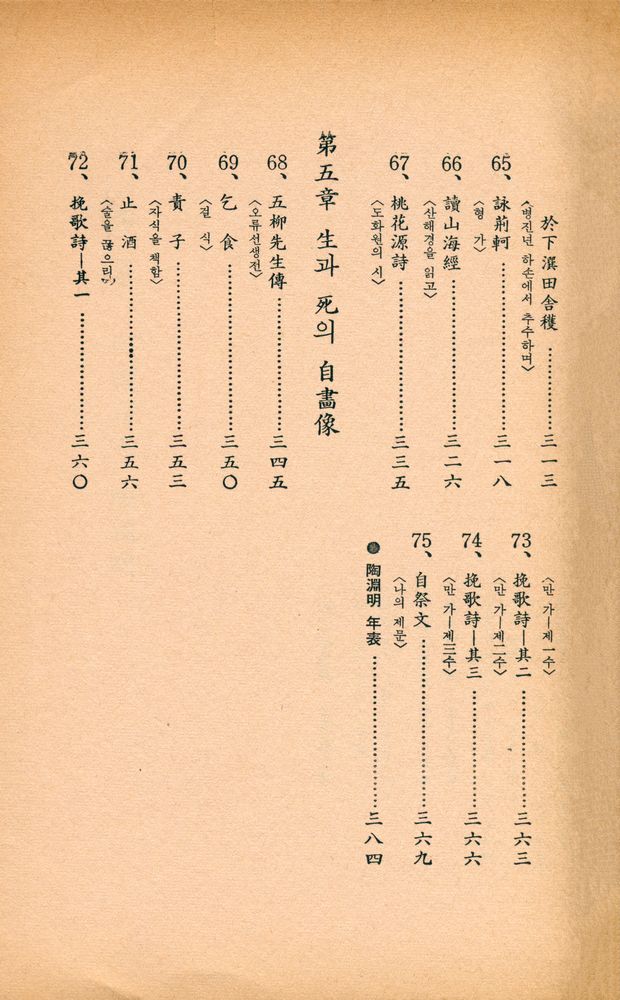 於下潠田舍穫 ………… 三一三
〈병진년 하손에서 추수하며〉
65、詠荊軻 ………… 三一八
〈형 가〉
66、讀山海經 ………… 三二六
〈산해경을 읽고〉
67、桃花源詩 ………… 三三五
〈도화원의 시〉
第五章 生과 死의 自畵像
68、五柳先生傳 ………… 三四五
〈오류선생전〉
69、乞食 ………… 三五〇
〈걸 식〉
70、責子 ………… 三五三
〈자식을 책함〉
71、止酒 ………… 三五六
〈술을 끊으리〉
72、挽歌詩—其一 ………… 三六〇
〈만 가—제一수〉
73、挽歌詩—其二 ………… 三六三
〈만 가—제二수〉
74、挽歌詩—其三 ………… 三六六
〈만 가—제三수〉
75、自祭文 ………… 三六九
〈나의 제문〉
● 陶淵明 年表 ………… 三八四